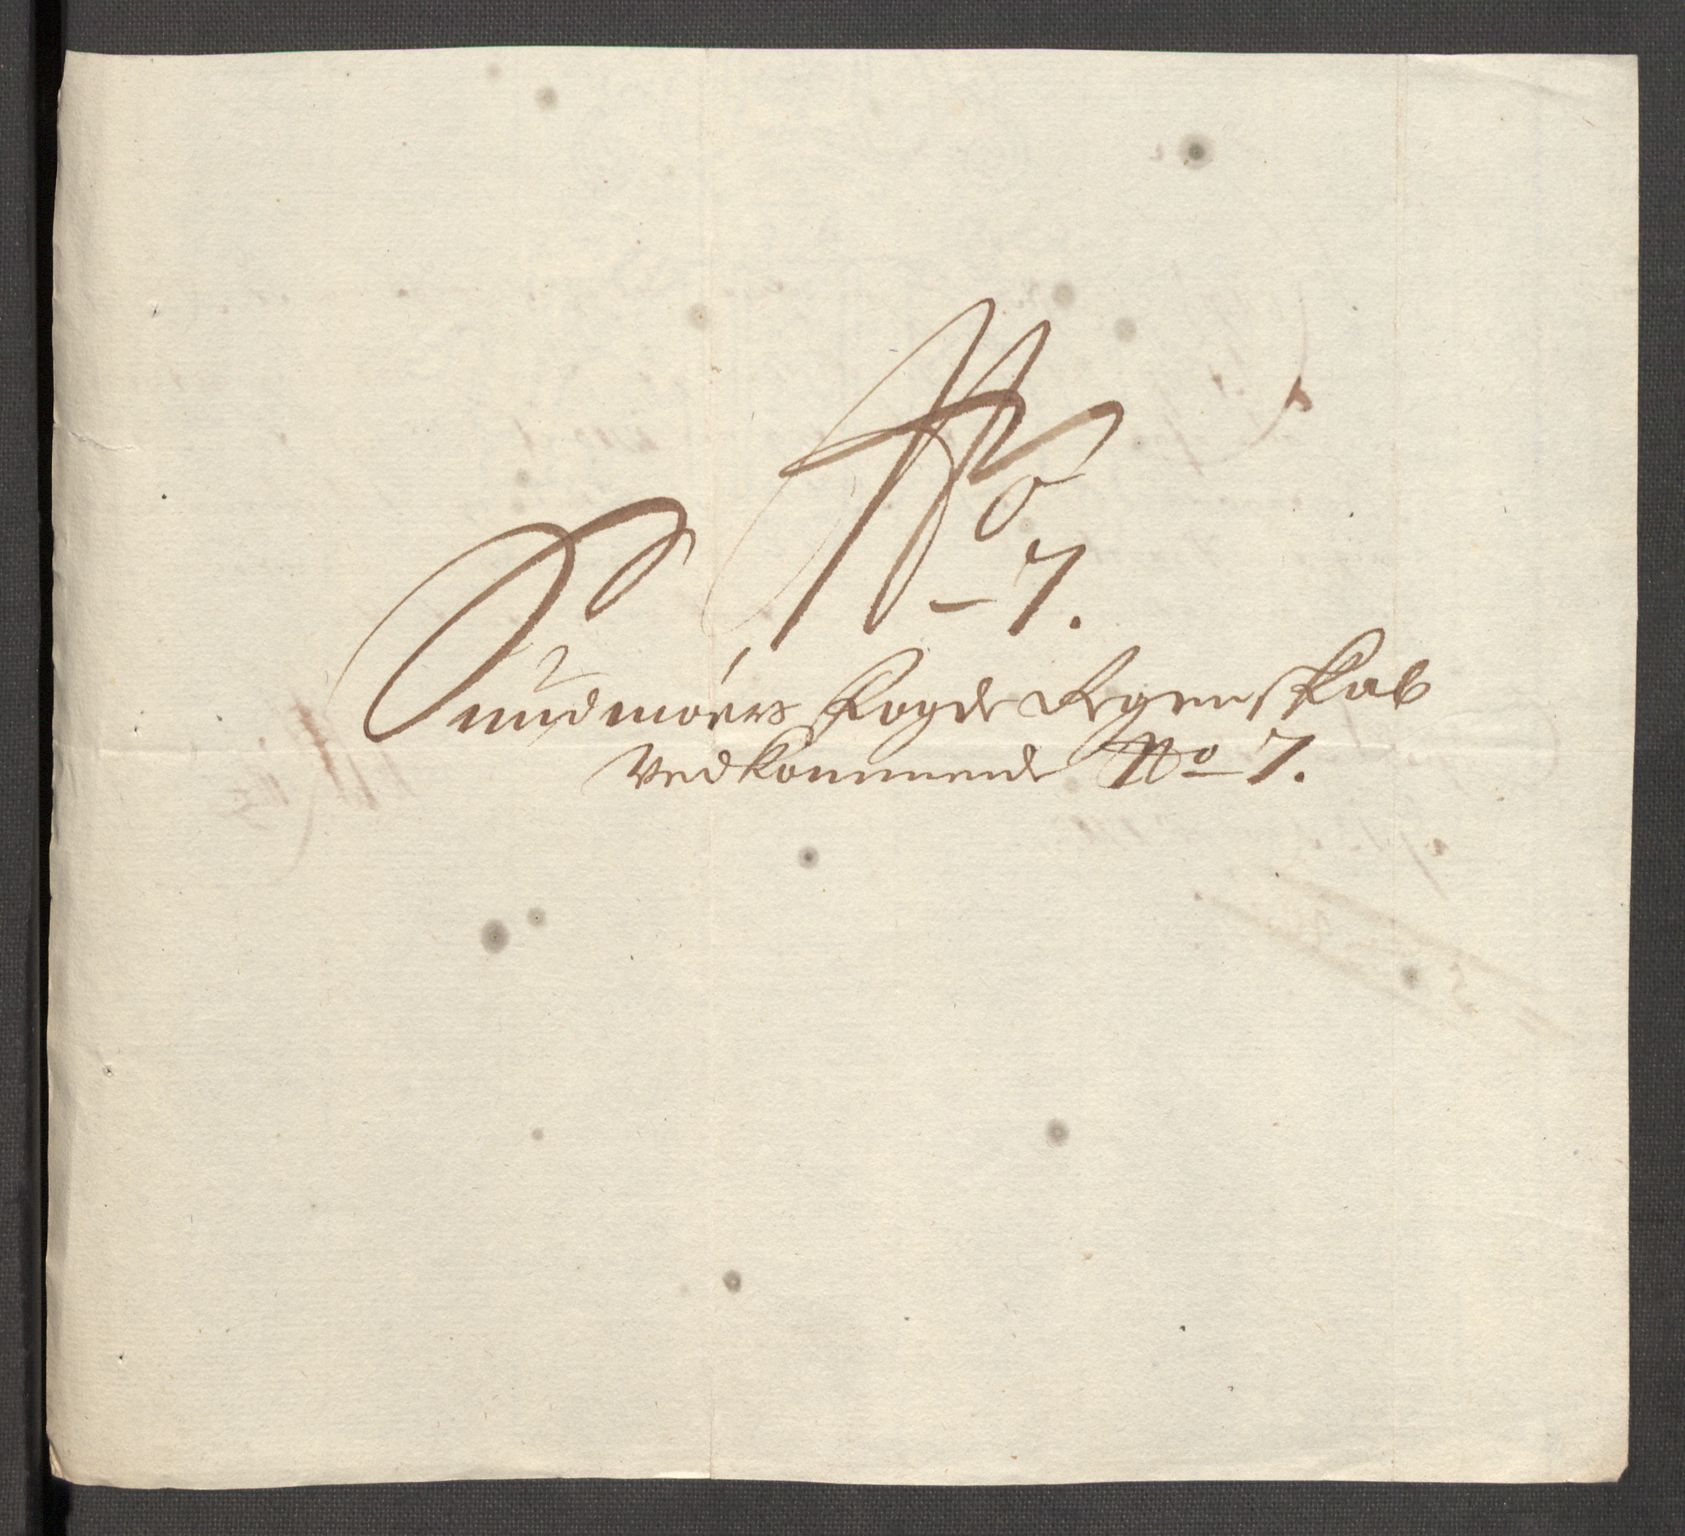 No 7.
Sundmøers Fogde Regenskab
Vedkommende No 7.